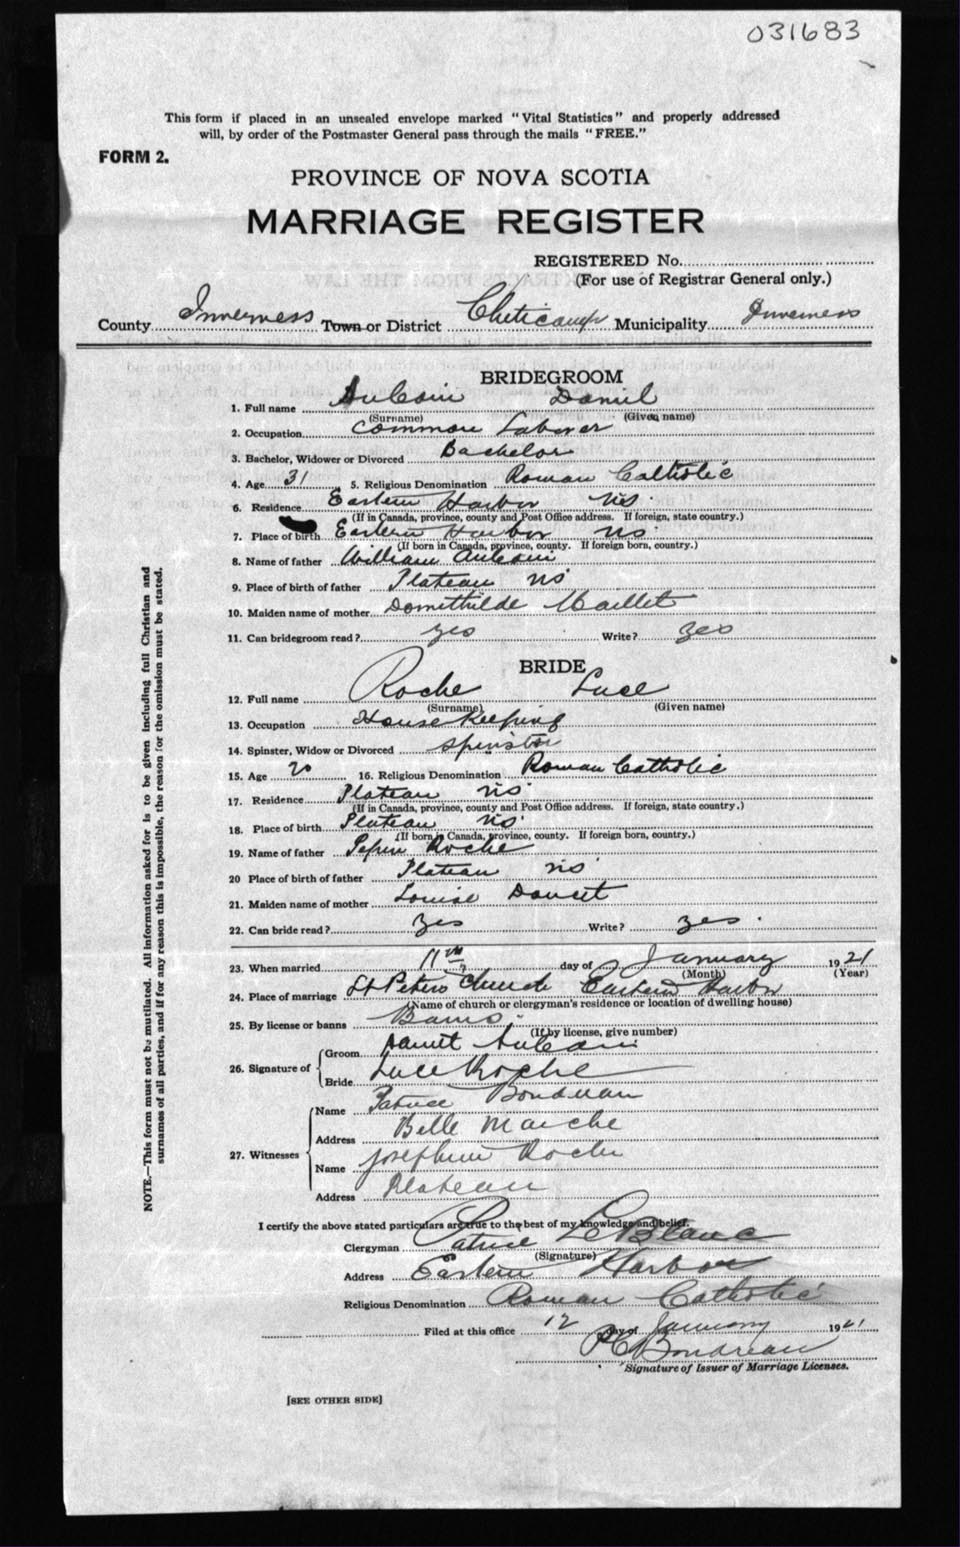 031683
This form if placed in an unsealed envelope marked "Vital Statistics" and properly addressed
will, by order of the Postmaster General pass through the mails "FREE."
FORM 2.
PROVINCE OF NOVA SCOTIA
MARRIAGE REGISTER
REGISTERED No.
(For use of Registrar General only.)
County Inverness Town or District Cheticamp Municipality Inverness
BRIDEGROOM
1. Full name AuCoin Daniel
(Surname) (Given name)
2. Occupation Common Laborer
3. Bachelor, Widower or Divorced Bachelor
4. Age 31 5. Religious Denomination Roman Catholic
6. Residence Eastern Harbor NS.
(If in Canada, province, county and Post Office address. If foreign, state country.)
7. Place of birth Eastern Harbor NS.
(If born in Canada, province, county. If foreign born, country.)
8. Name of father William AuCoin
9. Place of birth of father Plateau NS
10. Maiden name of mother Domithilde Maillet
11. Can bridegroom read? yes Write? yes
BRIDE
12. Full name Roche Luce
(Surname) (Given name)
13. Occupation House Keeping
14. Spinster, Widow or Divorced Spinster
15. Age 20 16. Religious Denomination Roman Catholic
17. Residence Plateau NS.
(If in Canada, province, county and Post Office address. If foreign, state country.)
18. Place of birth Plateau NS.
(If born in Canada, province, county. If foreign born, country.)
19. Name of father Roche
20 Place of birth of father Plateau NS
21. Maiden name of mother Louise Doucet
22. Can bride read? yes Write? yes.
23. When married 11th day of January 1921
(Month) (Year)
24. Place of marriage St Peters Church Eastern Harbor
(Name of church or clergyman's residence or location of dwelling house)
25. By license or banns Banns.
(If by license, give number)
26. Signature of
Groom AuCoin
Bride Luce Roche
27. Witnesses
Name Patrice Boudreau
Address Belle Marche
Name Josephine Roche
Address Plateau
I certify the above stated particulars are true to the best of my knowledge and belief.
Clergyman Patrice LeBlanc
(Signature)
Address Eastern Harbor
Religious Denomination Roman Catholic
Filed at this office 12 day of January 1921
Boudreau
Signature of Issuer of Marriage Licenses.
[SEE OTHER SIDE]
NOTE.—This form must not be mutilated. All information asked for is to be given including full Christian and
surnames of all parties, and if for any reason this is impossible, the reason for the omission must be stated.